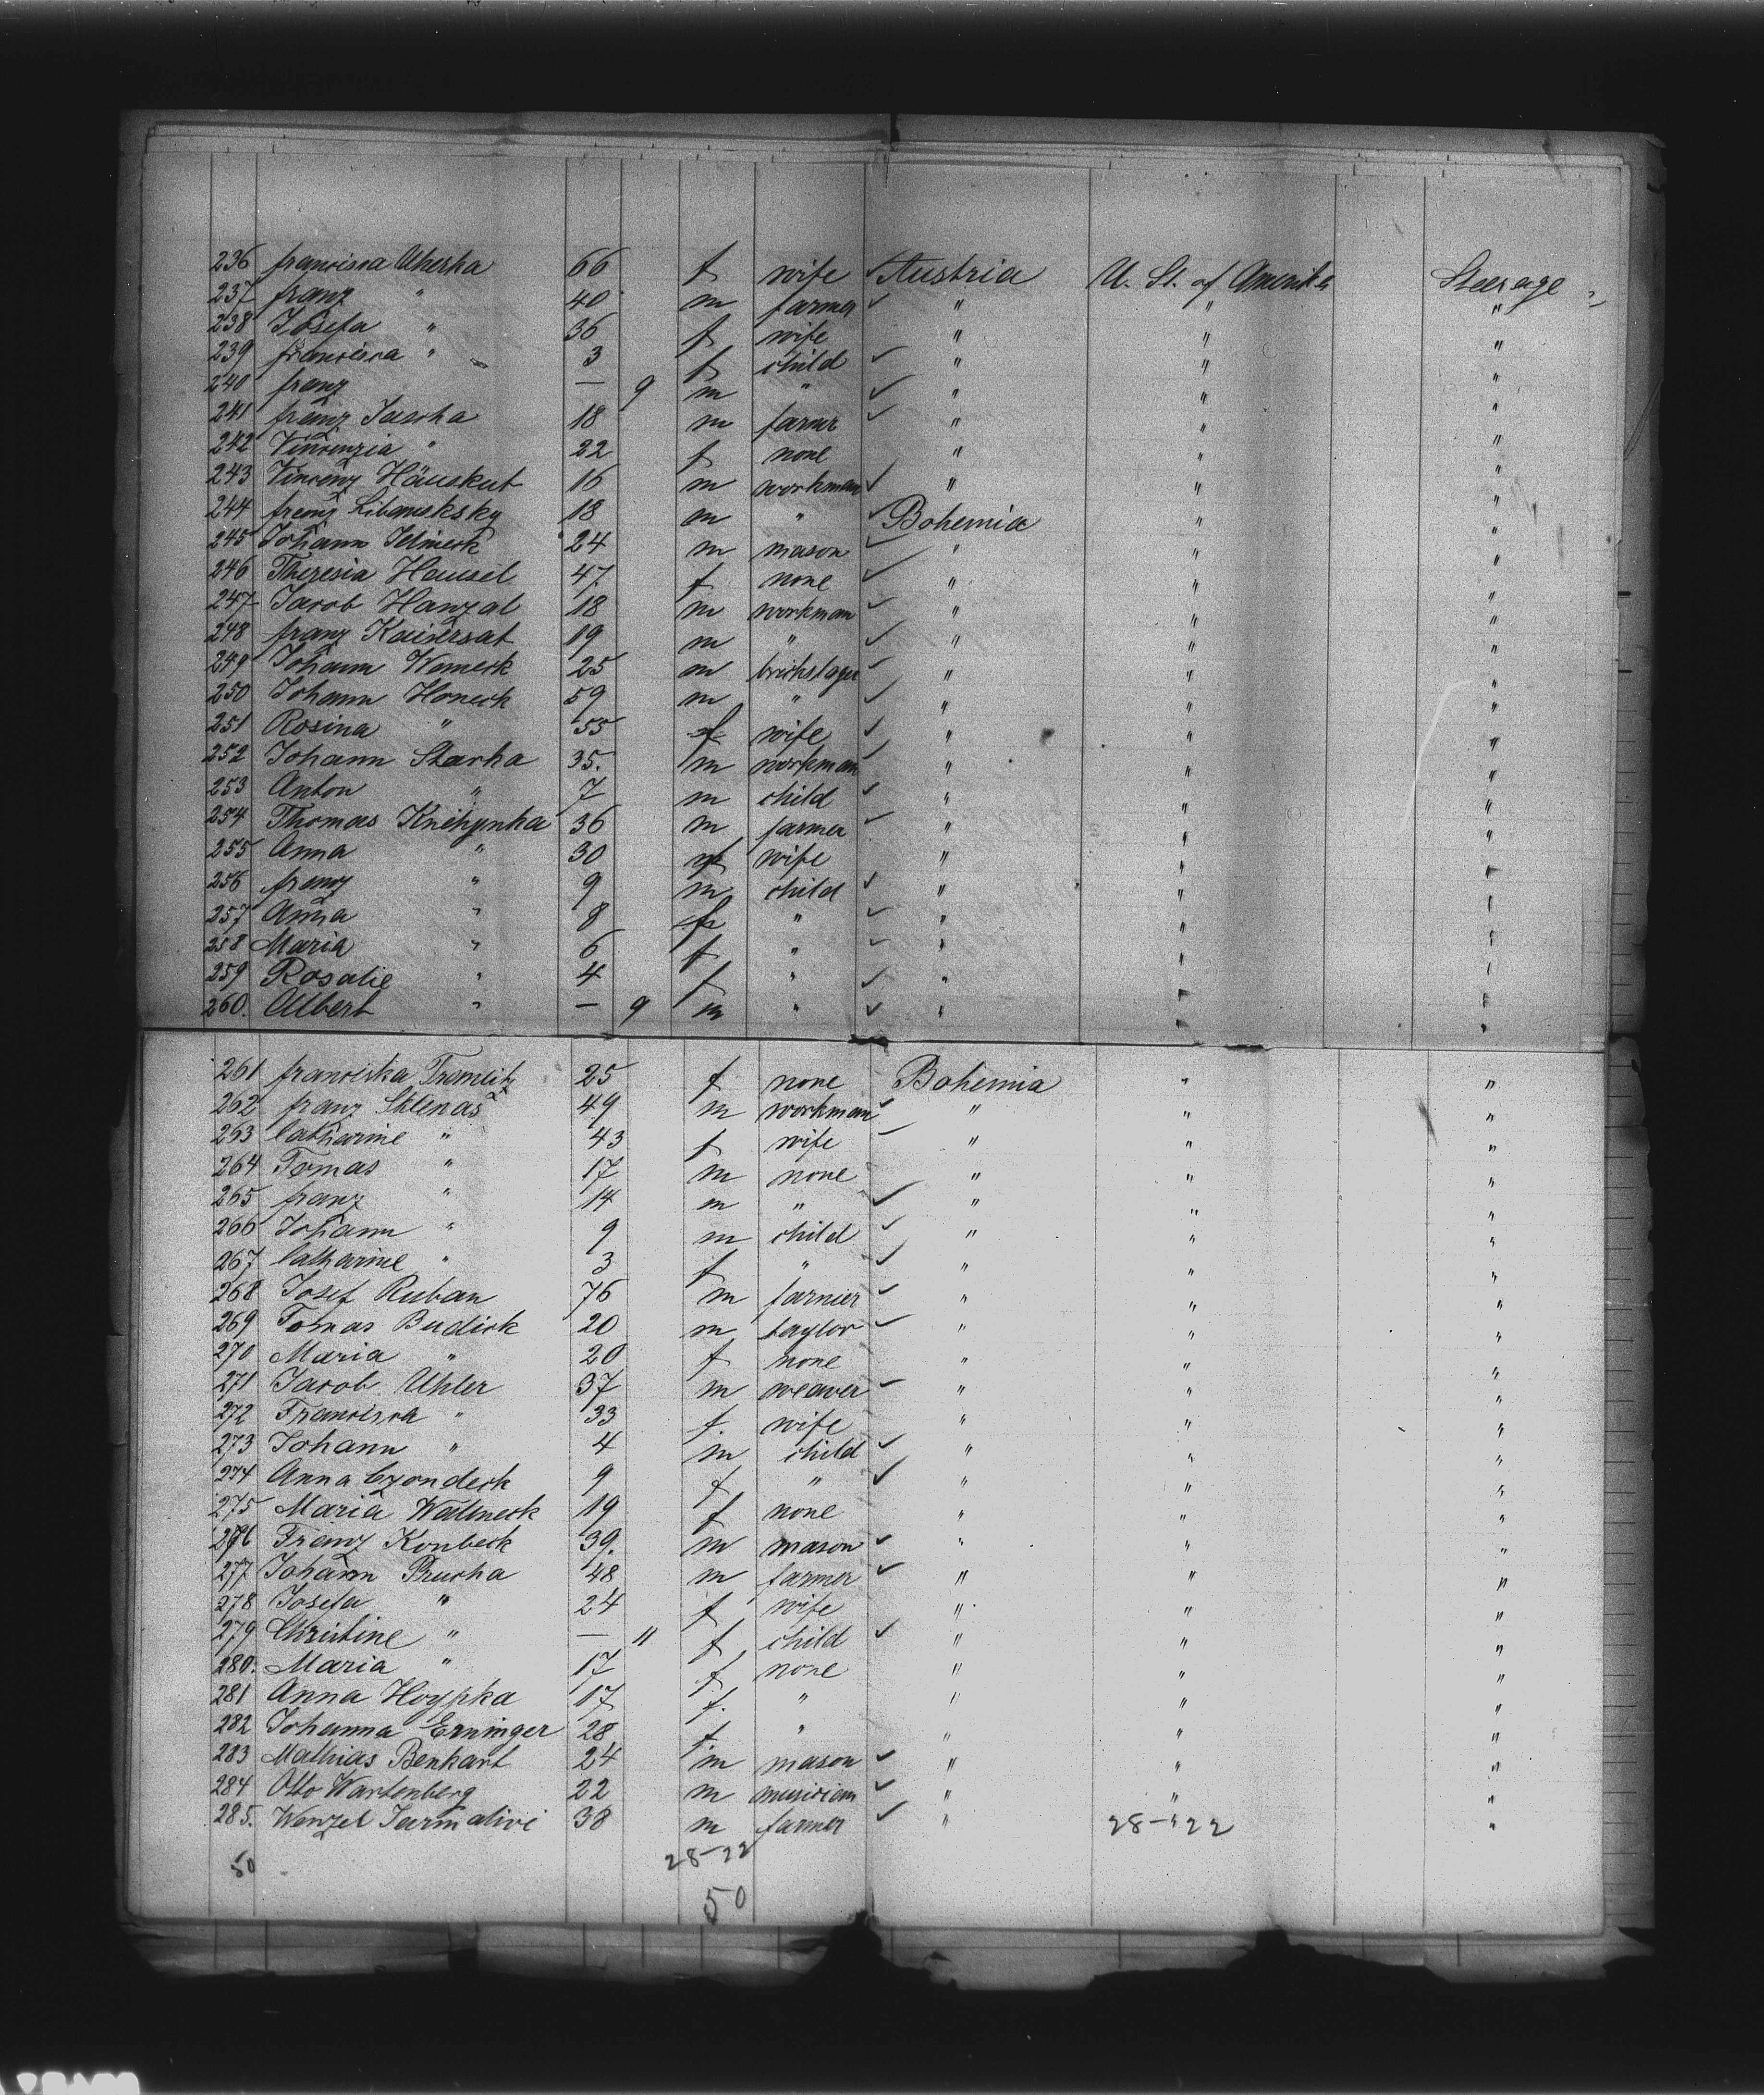 236 francisca Uherka 66 f wife Austria U. St. of Amerika Steerage
237 franz " 40 m farmer " " "
238 Josefa " 36 f wife " " "
239 francisca " 3 f child " " "
240 franz — 9 m " " " "
241 franz Jascha 18 m farmer " " "
242 Vincenzia " 22 f none " " "
243 Vincenz 16 m workman " " "
244 franz 18 m " Bohemia " "
245 Johann 24 m mason " " "
246 Theresia Hausel 47 f none " " "
247 Jacob Hanzal 18 m workman " " "
248 franz 19 m " " " "
249 Johann 25 m " " "
250 Johann Honeck 59 m " " " "
251 Rosina " 55 f wife " " "
252 Johann Starka 35. m workman " " "
253 Anton " 7 m child " " "
254 Thomas Knihynka 36 m farmer " " "
255 Anna " 30 f wife " " "
256 franz " 9 m child " " "
257 Anna " 8 f " " " "
258 Maria " 6 f " " " "
259 Rosalie " 4 f " " " "
260. Albert " — 9 m " " " "
261 franciska 25 f none Bohemia " "
262 franz Sklenas 49 m workman " " "
263 Catharine " 43 f wife " " "
264 Tomas " 17 m none " " "
265 franz " 14 m " " " "
266 Johann " 9 m child " " "
267 Catharine " 3 f " " " "
268 Josef Ruban 76 m farmer " " "
269 Tomas Budick 20 m taylor " " "
270 Maria " 20 f none " " "
271 Jacob Uhler 37 m weaver " " "
272 Francisca " 33 f. wife " " "
273 Johann " 4 m child " " "
274 Anna Czondeck 9 f " " " "
275 Maria 19 f none " " "
276 Franz Konbeck 39. m mason " " "
277 Johann Prucha 48 m farmer " " "
278 Josefa " 24 f wife " " "
279 Christine " — 11 f child " " "
280. Maria " 17 f none " " "
281 Anna 17 f. " " " "
282 Johanna Erninger 28 f " " " "
283 Mathias Benkart 24 m mason " " "
284 Otto Wartenberg 22 m musician " " "
285. Wenzel 38 m farmer " 28-22 "
50 28-22
50